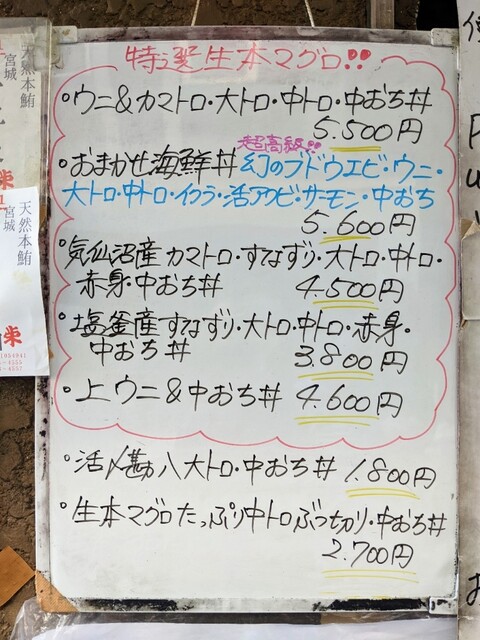 特選生本マグロ!!
•ウニ&カマトロ・大トロ・中トロ・中おち丼
5.500円
超高級!!
•おまかせ海鮮丼 幻のブドウエビ・ウニ・
大トロ・中トロ・イクラ・活アワビ・サーモン・中おち
5.600円
•気仙沼産 カマトロ・すなずり・大トロ・中トロ・
赤身・中おち丼 4.500円
•塩釜産すなずり・大トロ・中トロ・赤身・
中おち丼 3.800円
•上ウニ&中おち丼 4.600円
•活〆勘八大トロ・中おち丼 1.800円
•生本マグロたっぷり中トロぶつ切り・中おち丼
2.700円
宮城
天然本鮪
宮城
天然本鮪